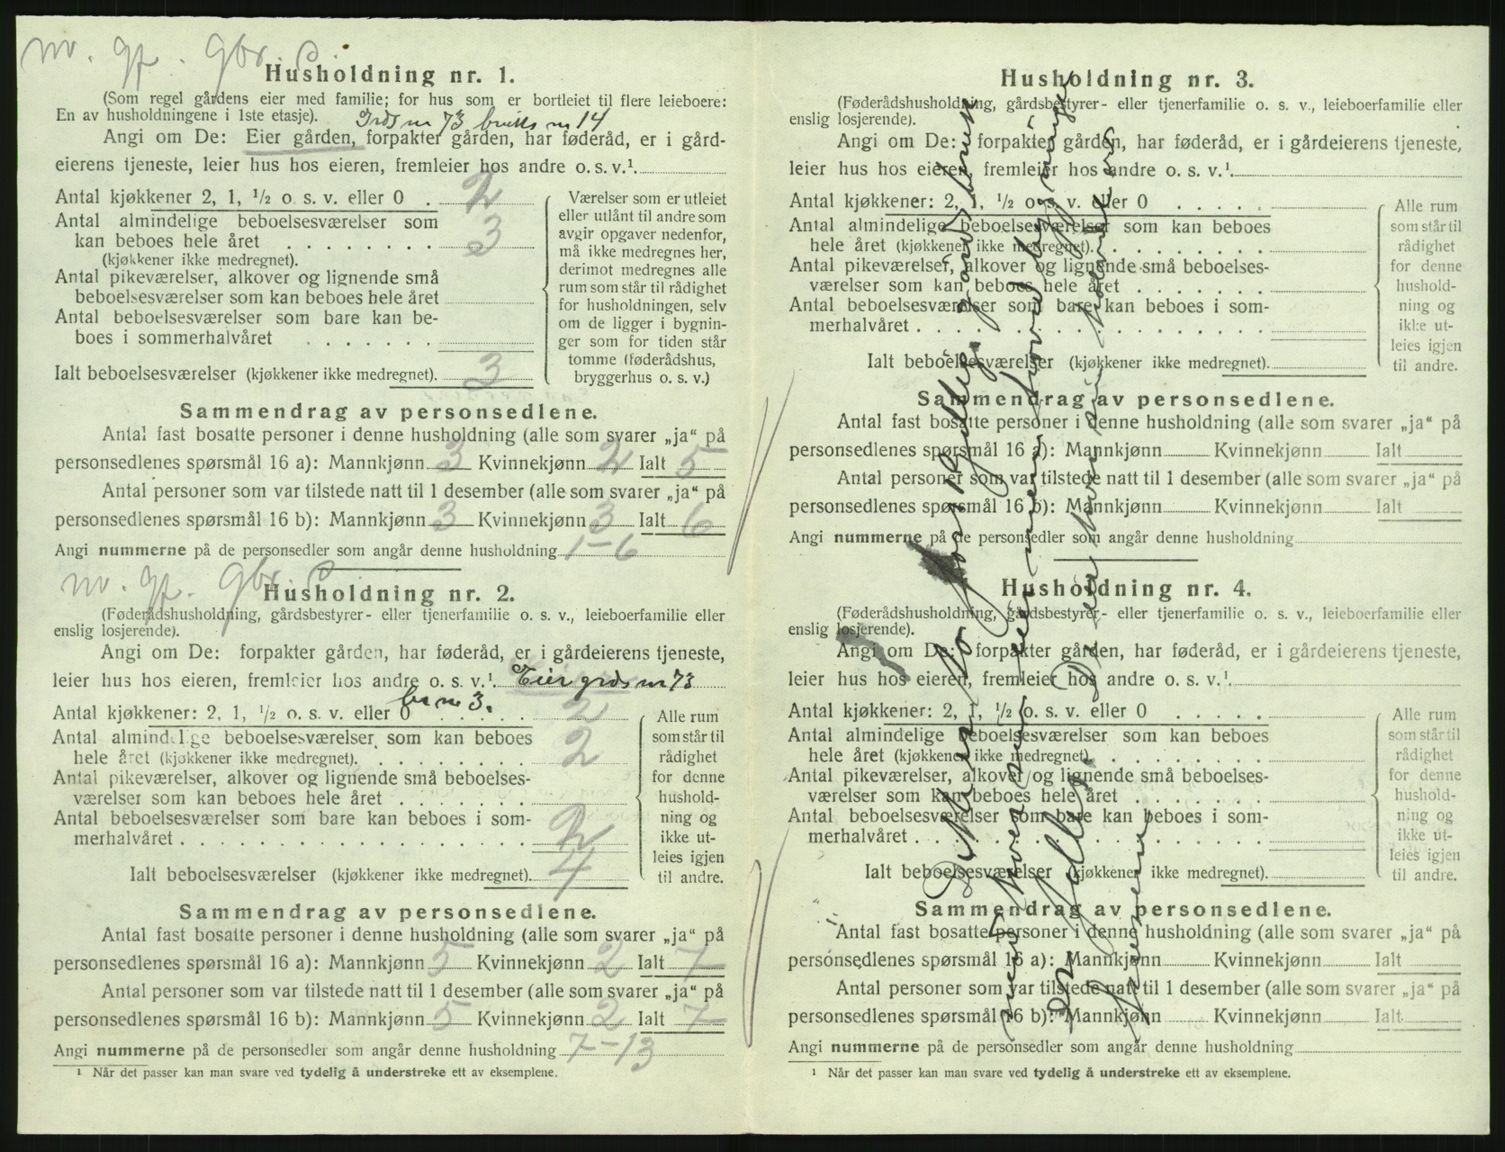 nv. gf. gbr. S.
Husholdning nr. 1.
(Som regel gårdens eier med familie; for hus som er bortleiet til flere leieboere:
En av husholdningene i 1ste etasje). Grds nr 73 bruks nr 14
Angi om De: Eier gården, forpakter gården, har føderåd, er i gård-
eierens tjeneste, leier hus hos eieren, fremleier hos andre o. s. v.¹
Antal kjøkkener 2, 1, ½ o. s. v. eller 0 . 2
Antal almindelige beboelsesværelser som
kan beboes hele året . . . . . . . . 3
(kjøkkener ikke medregnet).
Antal pikeværelser, alkover og lignende små
beboelsesværelser som kan beboes hele året
Antal beboelsesværelser som bare kan be-
boes i sommerhalvåret . . . . . . .
Ialt beboelsesværelser (kjøkkener ikke medregnet). 3
Værelser som er utleiet
eller utlånt til andre som
avgir opgaver nedenfor,
må ikke medregnes her,
derimot medregnes alle
rum som står til rådighet
for husholdningen, selv
om de ligger i bygnin-
ger som for tiden står
tomme (føderådshus,
bryggerhus o. s. v.)
Sammendrag av personsedlene.
Antal fast bosatte personer i denne husholdning (alle som svarer „ja“ på
personsedlenes spørsmål 16 a): Mannkjønn 3 Kvinnekjønn 2 Ialt 5
Antal personer som var tilstede natt til 1 desember (alle som svarer „ja“ på
personsedlenes spørsmål 16 b): Mannkjønn 3 Kvinnekjønn 3 Ialt 6
Angi nummerne på de personsedler som angår denne husholdning 1-6
nv. gf. gbr. S
Husholdning nr. 2.
(Føderådshusholdning, gårdsbestyrer- eller tjenerfamilie o. s. v., leieboerfamilie eller
enslig losjerende).
Angi om De: forpakter gården, har føderåd, er i gårdeierens tjeneste,
leier hus hos eieren, fremleier hos andre o. s. v.¹ Eier grds nr 73
br nr 3.
Antal kjøkkener: 2, 1, ½ o. s. v. eller 0 . . . . . 2
Antal almindelige beboelsesværelser som kan beboes
hele året (kjøkkener ikke medregnet). . . . . . . 2
Antal pikeværelser, alkover og lignende små beboelses-
værelser som kan beboes hele året . . . . . . .
Antal beboelsesværelser som bare kan beboes i som-
merhalvåret . . . . . . . . . . . . . . . . . 2
Ialt beboelsesværelser (kjøkkener ikke medregnet). 4
Alle rum
som står til
rådighet
for denne
hushold-
ning og
ikke ut-
leies igjen
til andre.
Sammendrag av personsedlene.
Antal fast bosatte personer i denne husholdning (alle som svarer „ja“ på
personsedlenes spørsmål 16 a): Mannkjønn 5 Kvinnekjønn 2 Ialt 7
Antal personer som var tilstede natt til 1 desember (alle som svarer „ja“ på
personsedlenes spørsmål 16 b): Mannkjønn 5 Kvinnekjønn 2 Ialt 7
Angi nummerne på de personsedler som angår denne husholdning 7-13
¹ Når det passer kan man svare ved tydelig å understreke ett av eksemplene.
Husholdning nr. 3.
(Føderådshusholdning, gårdsbestyrer- eller tjenerfamilie o. s. v., leieboerfamilie eller
enslig losjerende).
Angi om De: forpakter gården, har føderåd, er i gårdeierens tjeneste,
leier hus hos eieren, fremleier hos andre o. s. v.¹
Antal kjøkkener: 2, 1, ½ o. s. v. eller 0 . . . . .
Antal almindelige beboelsesværelser som kan beboes
hele året (kjøkkener ikke medregnet). . . . . . .
Antal pikeværelser, alkover og lignende små beboelses-
værelser som kan beboes hele året . . . . . . .
Antal beboelsesværelser som bare kan beboes i som-
merhalvåret . . . . . . . . . . . . . . . . .
Ialt beboelsesværelser (kjøkkener ikke medregnet).
Alle rum
som står til
rådighet
for denne
hushold-
ning og
ikke ut-
leies igjen
til andre.
Sammendrag av personsedlene.
Antal fast bosatte personer i denne husholdning (alle som svarer „ja“ på
personsedlenes spørsmål 16 a): Mannkjønn Kvinnekjønn Ialt
Antal personer som var tilstede natt til 1 desember (alle som svarer „ja“ på
personsedlenes spørsmål 16 b): Mannkjønn Kvinnekjønn Ialt
Angi nummerne på de personsedler som angår denne husholdning
Husholdning nr. 4.
(Føderådshusholdning, gårdsbestyrer- eller tjenerfamilie o. s. v., leieboerfamilie eller
enslig losjerende).
Angi om De: forpakter gården, har føderåd, er i gårdeierens tjeneste,
leier hus hos eieren, fremleier hos andre o. s. v.¹
Antal kjøkkener: 2, 1, ½ o. s. v. eller 0 . . . . .
Antal almindelige beboelsesværelser som kan beboes
hele året (kjøkkener ikke medregnet). . . . . . .
Antal pikeværelser, alkover og lignende små beboelses-
værelser som kan beboes hele året . . . . . . .
Antal beboelsesværelser som bare kan beboes i som-
merhalvåret . . . . . . . . . . . . . . . . .
Ialt beboelsesværelser (kjøkkener ikke medregnet).
Alle rum
som står til
rådighet
for denne
hushold-
ning og
ikke ut-
leies igjen
til andre.
Sammendrag av personsedlene.
Antal fast bosatte personer i denne husholdning (alle som svarer „ja“ på
personsedlenes spørsmål 16 a): Mannkjønn Kvinnekjønn Ialt
Antal personer som var tilstede natt til 1 desember (alle som svarer „ja“ på
personsedlenes spørsmål 16 b): Mannkjønn Kvinnekjønn Ialt
Angi nummerne på de personsedler som angår denne husholdning
¹ Når det passer kan man svare ved tydelig å understreke ett av eksemplene.
Det er to forskjellige gårdsbruk
med hver sin eier men hovedbygningen
er felles De har hver sin halvdel av